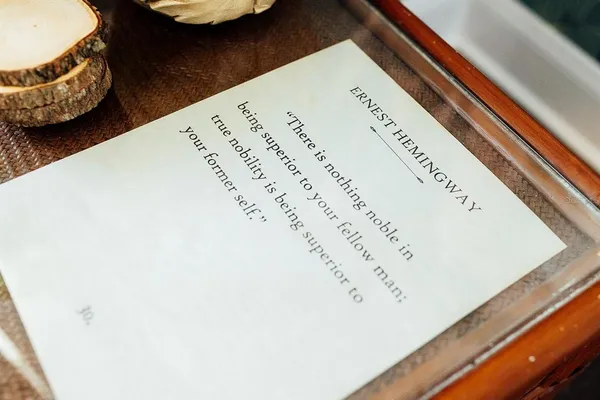 ERNEST HEMINGWAY
“There is nothing noble in
being superior to your fellow man;
true nobility is being superior to
your former self.”
30.